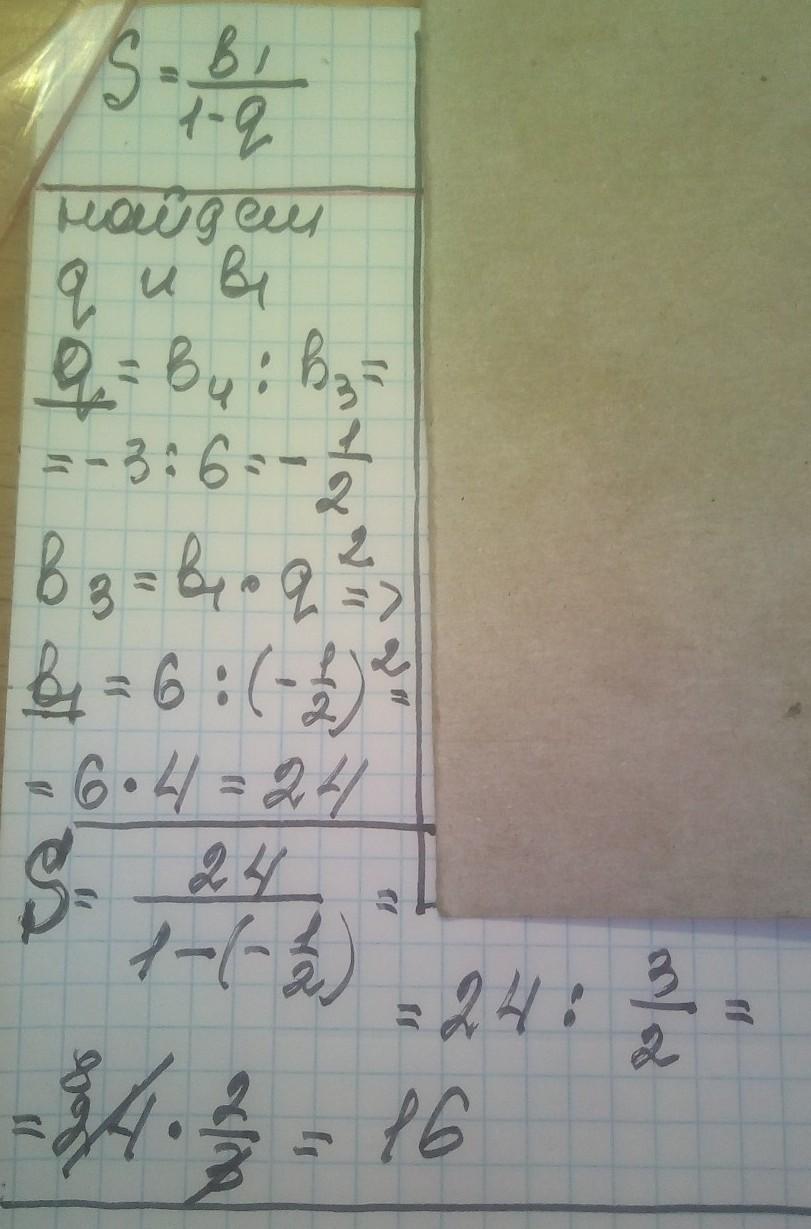 S = в1 / 1-q
найдем
q и в1
q = в4 : в3 =
= -3 : 6 = - 1/2
в3 = в1 · q² =>
в1 = 6 : (- 1/2)² =
= 6 · 4 = 24
S = 24 / 1-(- 1/2) =
= 24 : 3/2 =
8
= 24 · 2/3 = 16